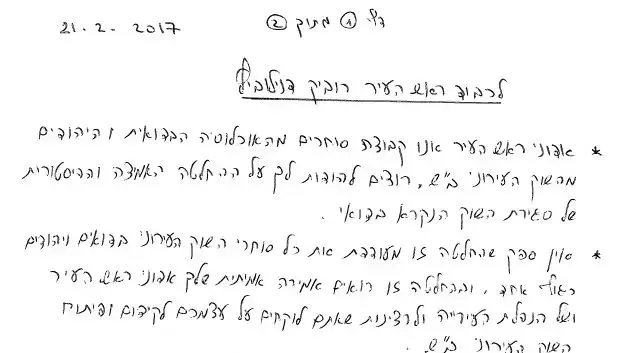 21.2.2017 דף ① מתוך ②
לכבוד ראש העיר רוביק דנילוביץ
* אדוני ראש העיר אנו קבוצת סוחרים מהאוכלוסיה הבדואית והיהודים
מהשוק העירוני ב"ש, רוצים להודות לך על ההחלטה האמיצה וההיסטורית
של סגירת השוק הנקרא בדואי.
* אין ספק שהחלטה זו מעודדת את כל סוחרי השוק העירוני בדואים ויהודים
אחד, ובהחלטה זו רואים אמירה אמיתית שלך אדוני ראש העיר
ושל הנהלת העירייה ולרצינות שאתם לוקחים על עצמכם לקידום ופיתוח
השוק העירוני ב"ש.